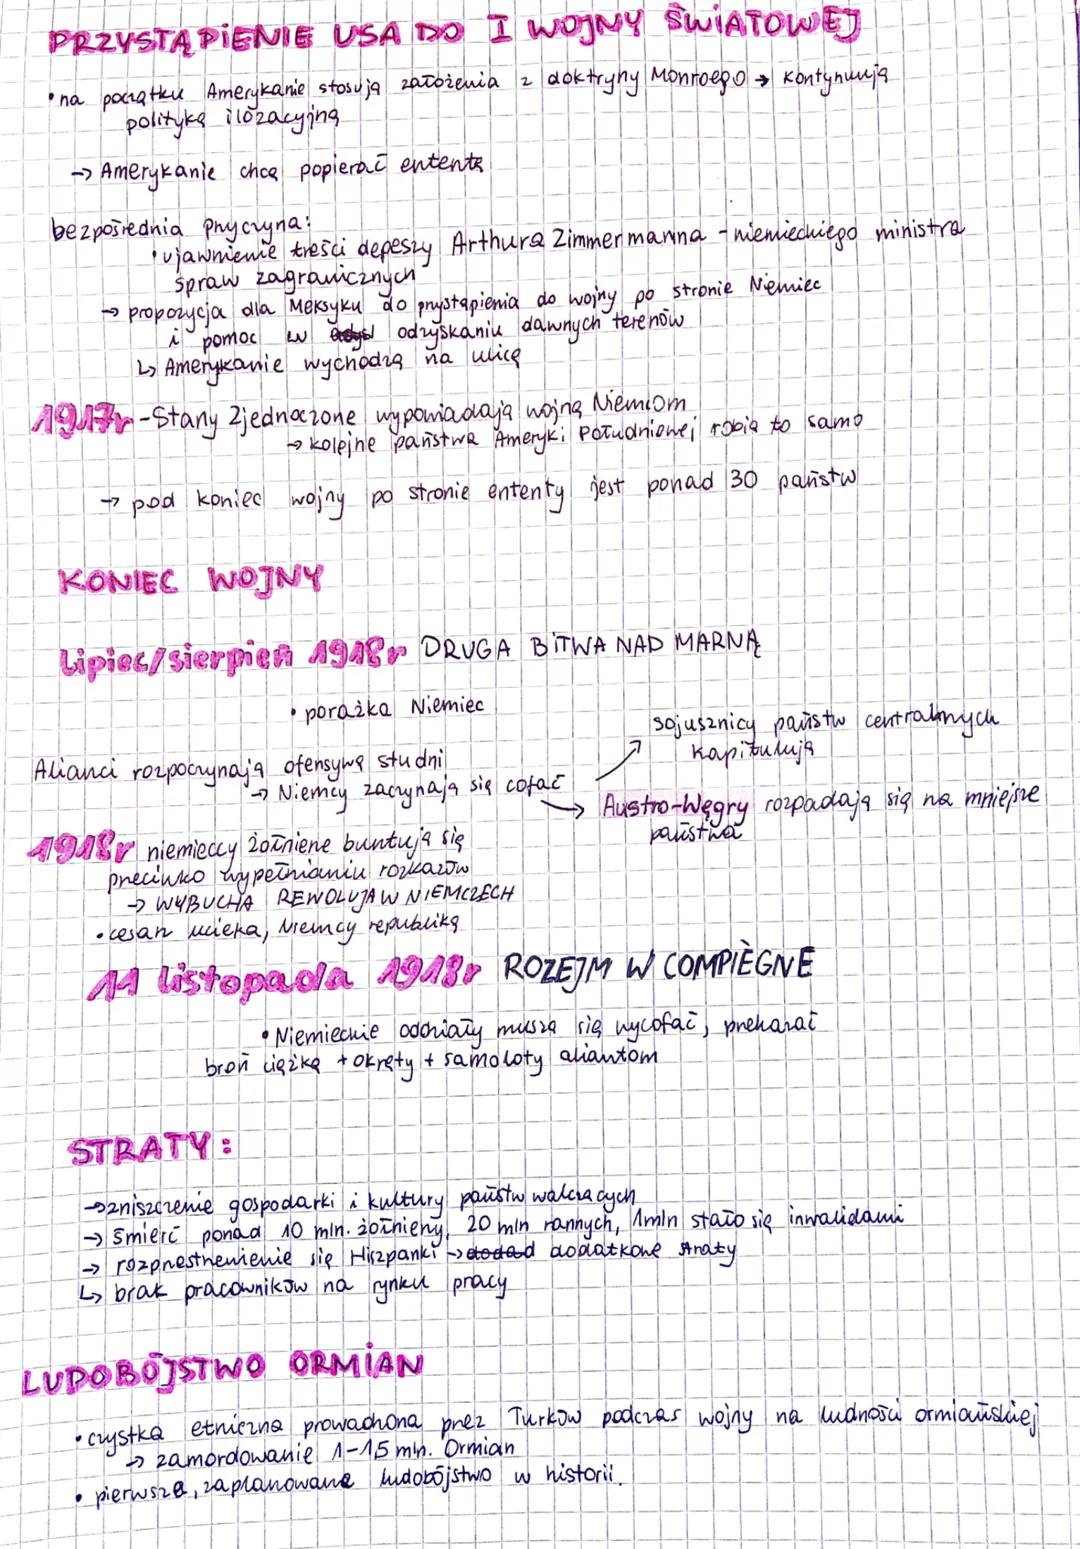 PRZYSTĄPIENIE USA DO I WOJNY ŚWIATOWEJ
• na początku Amerykanie stosują założenia z doktryny Monroego → kontynuują
politykę ilozacyjną
→ Amerykanie chcą popierać ententę
bezpośrednia przyczyna:
• ujawnienie treści depeszy Arthura Zimmermanna - niemieckiego ministra
spraw zagranicznych
→ propozycja dla Meksyku do przystąpienia do wojny po stronie Niemiec
i pomoc w odzyskaniu dawnych terenów
↳ Amerykanie wychodzą na ulicę
1917r - Stany Zjednoczone wypowiadają wojnę Niemcom
→ kolejne państwa Ameryki Południowej robią to samo
→ pod koniec wojny po stronie ententy jest ponad 30 państw
KONIEC WOJNY
lipiec/sierpień 1918r DRUGA BITWA NAD MARNĄ
• porażka Niemiec
sojusznicy państw centralnych
kapitulują
Alianci rozpoczynają ofensywę studni
→ Niemcy zaczynają się cofać
Austro-Węgry rozpadają się na mniejsze
państwa
1918r niemieccy żołnierze buntują się
przeciwko wypełnianiu rozkazów
→ WYBUCHA REWOLUJA W NIEMCZECH
• cesarz ucieka, Niemcy republiką
11 listopada 1918r ROZEJM W COMPIÈGNE
• Niemieckie oddziały muszą się wycofać, przekazać
broń ciężką + okręty + samoloty aliantom
STRATY:
→ zniszczenie gospodarki i kultury państw walczących
→ śmierć ponad 10 mln. żołnierzy, 20 mln rannych, 1mln stało się inwalidami
→ rozprzestrzenienie się Hiszpanki → dodatkowe straty
↳ brak pracowników na rynku pracy
LUDOBÓJSTWO ORMIAN
• czystka etniczna prowadzona przez Turków podczas wojny na ludności ormiańskiej
→ zamordowanie 1-1,5 mln. Ormian
• pierwsze, zaplanowane ludobójstwo w historii.